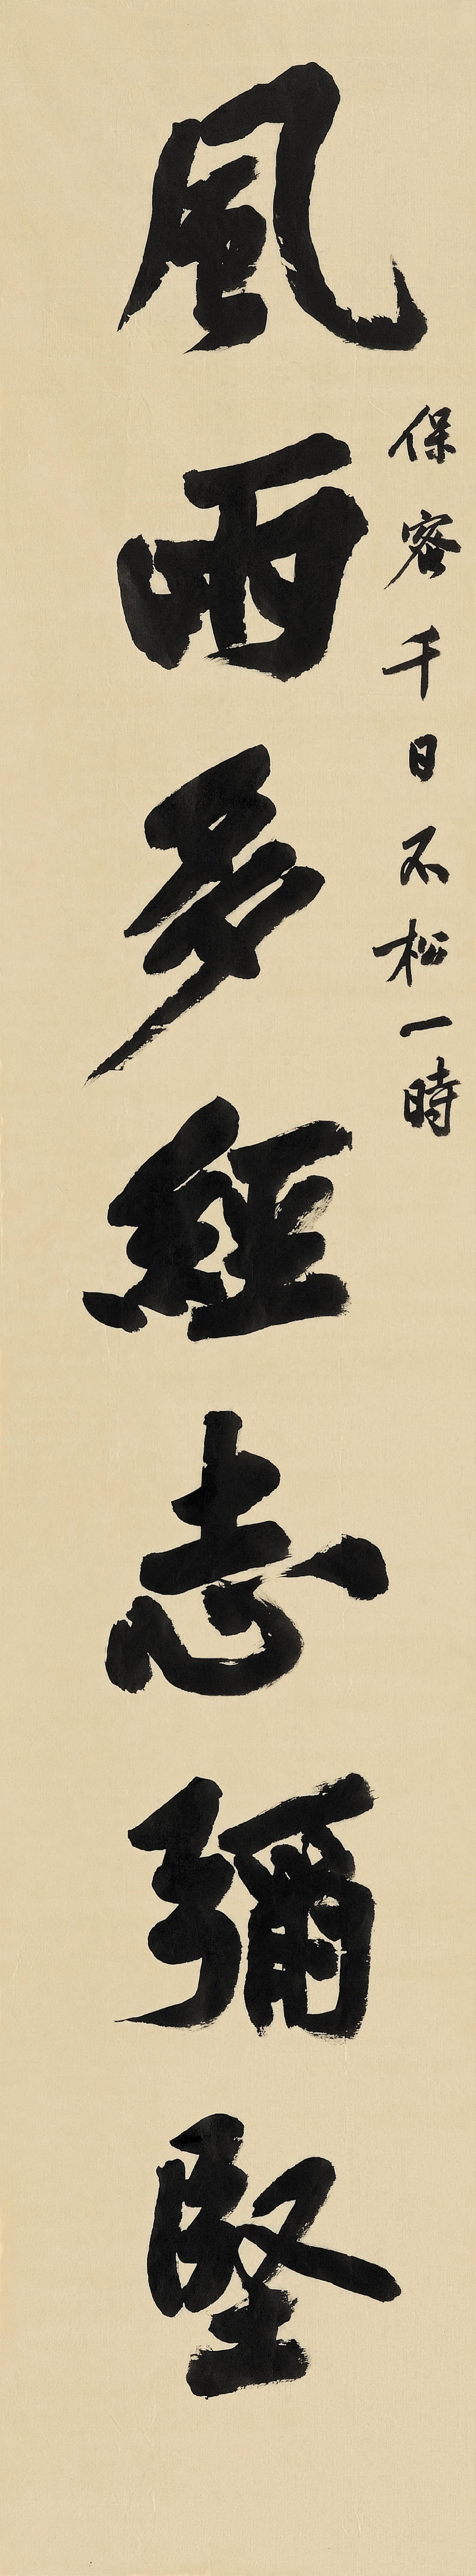 保密千日不松一時
風雨多經志彌堅